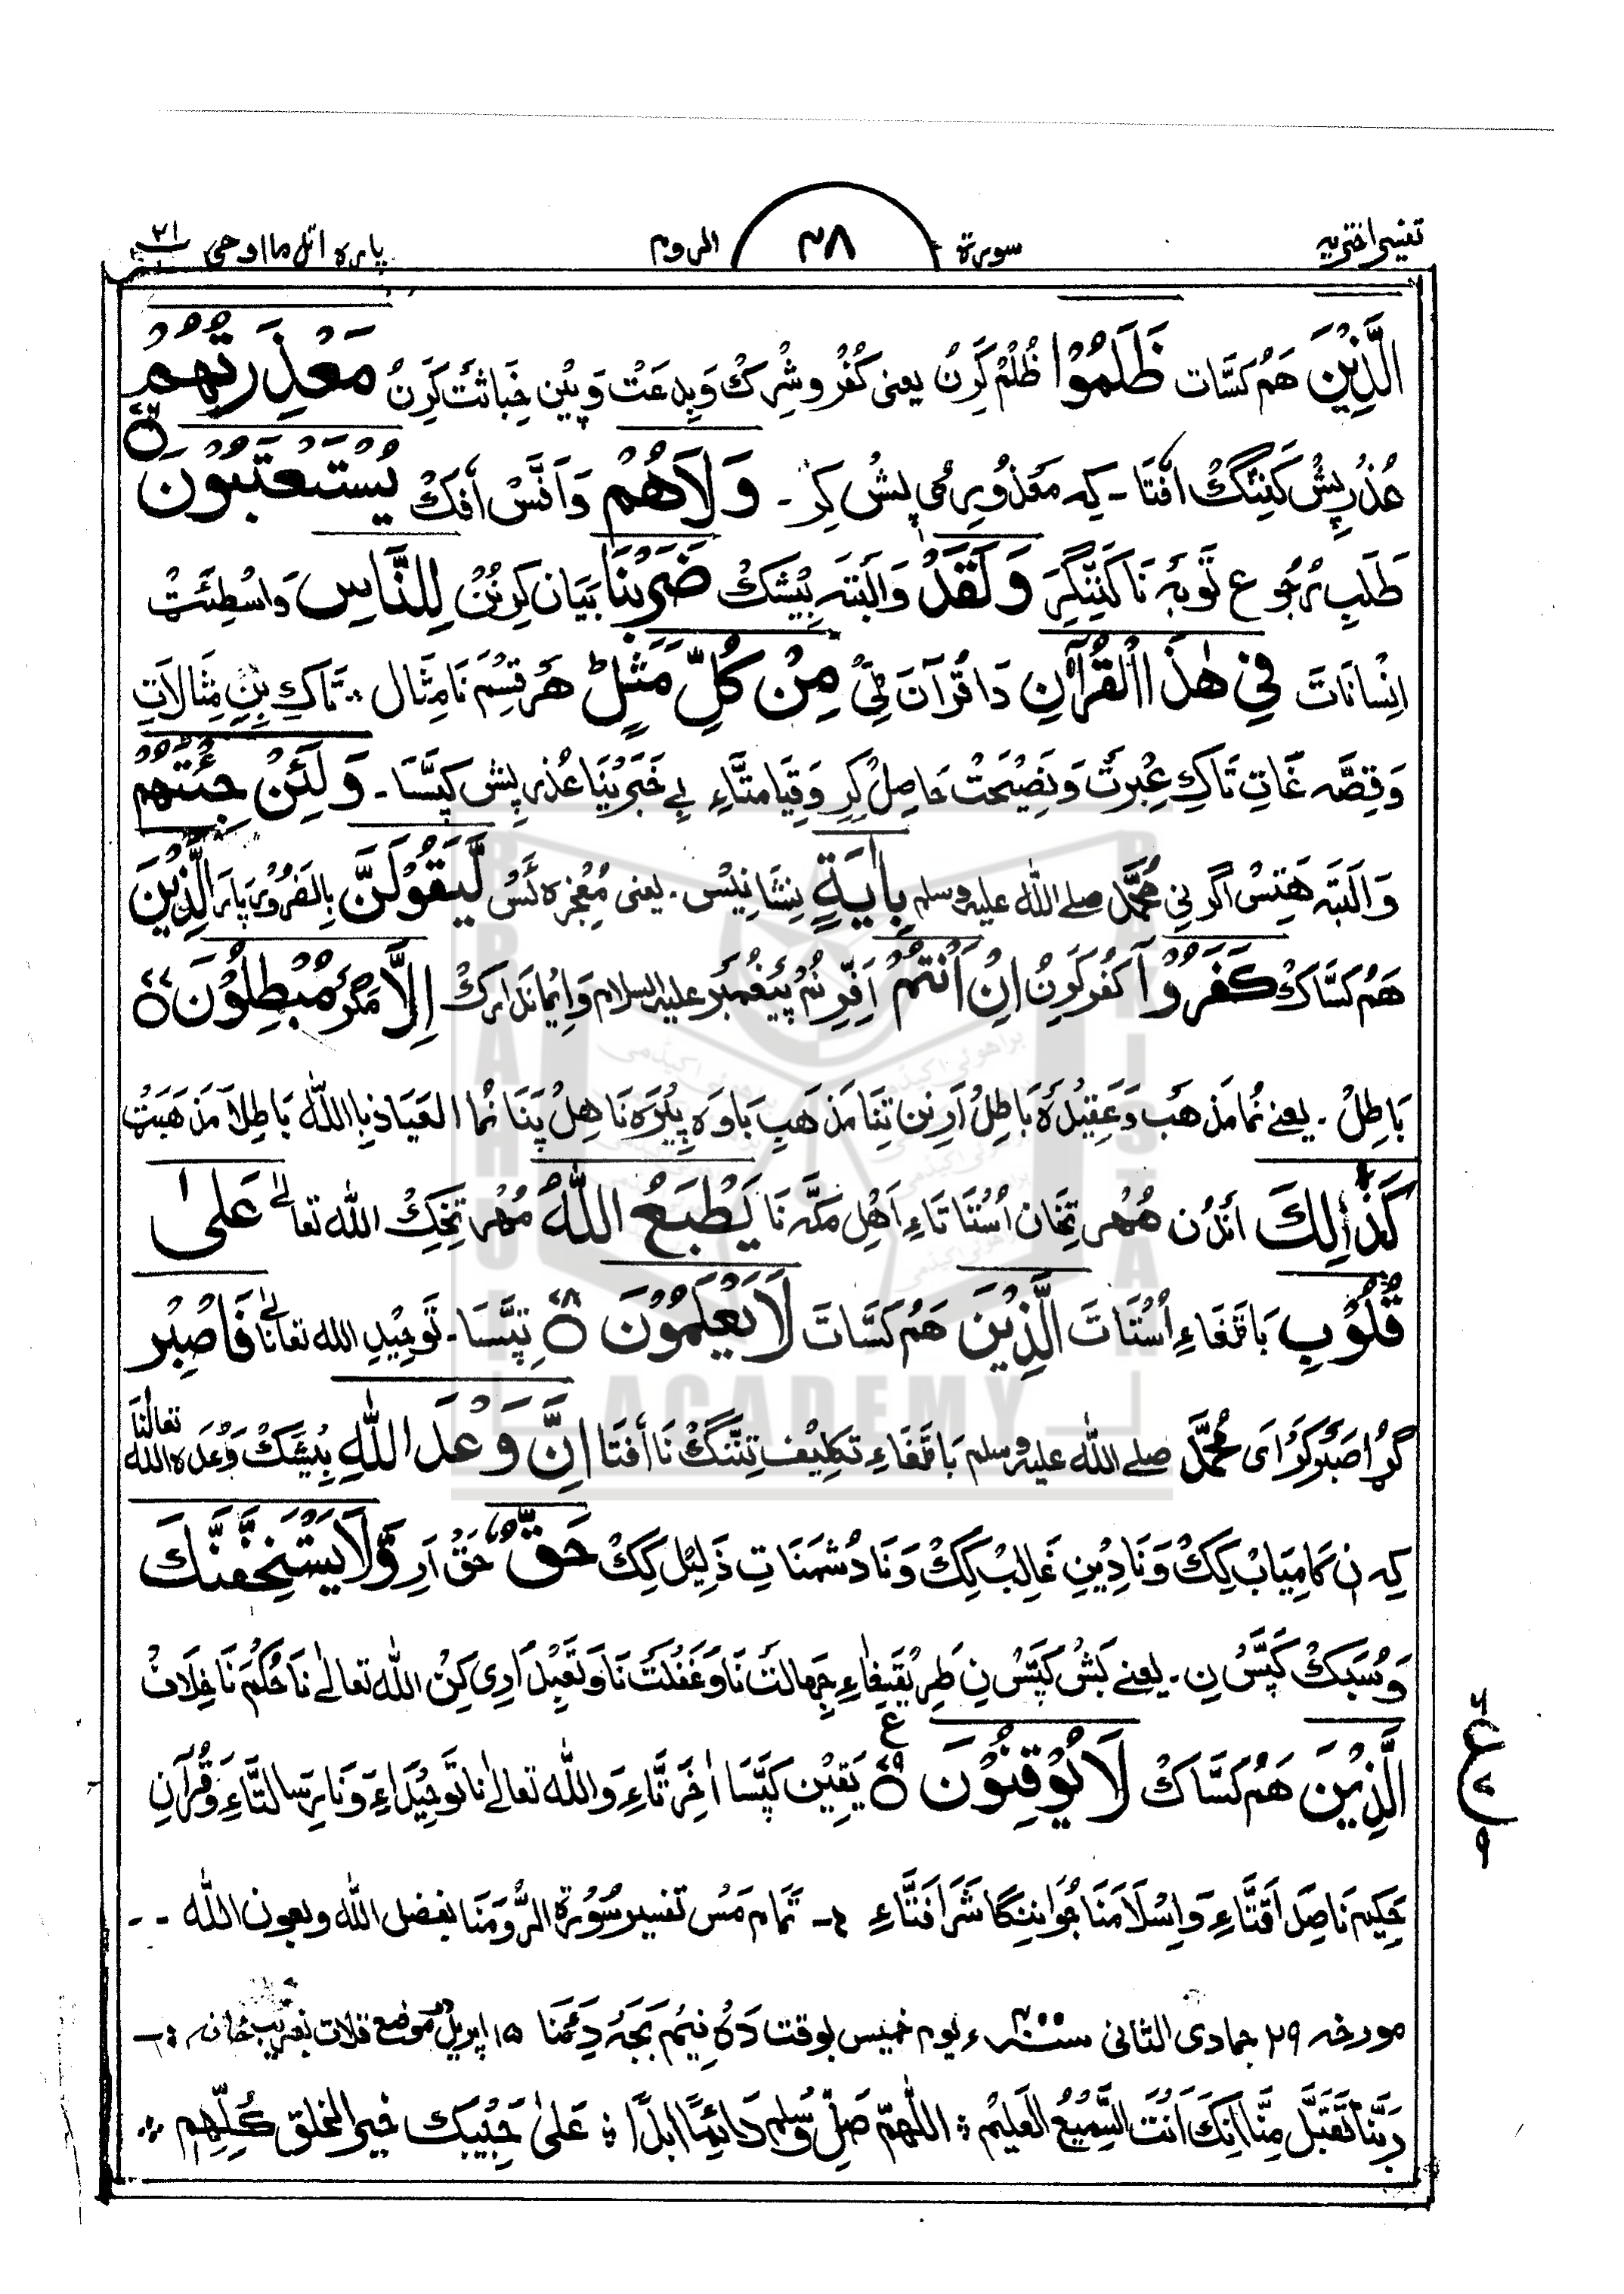 تفسیر اختریہ سورۃ ۳۸ الروم پارہ اتل ما اوحی ۲۱
الَّذِيْنَ هَم کسَّات ظَلَمُوْا ظُلْم کَرِنُ یعنی کُفْر و شِرک وَ بِدعَتْ وَ پِیْن خَباثَتْ کَرِنُ مَعْذِرَتُهُمْ
عُذْر پیشْ کَنِنگ اُفتَا ۔ کہ مَعْذُورِی پیشْ کِر ۔ وَلَاهُمْ وَ اَنَّسْ اُفکْ يُسْتَعْتَبُوْنَ ۵۷
طَلَبِ رُجُوع تَوبَہ نَا کَنِنِگرَ وَلَقَدْ وَ اَلبتہ بیشکْ ضَرَبْنَا بَیَان کَرِنُنْ لِلنَّاسِ وَاسْطِئَتْ
اِنْسَانَاتَ فِيْ هٰذَا الْقُرْاٰنِ دَا قُرآنَ ٹِیْ مِنْ كُلِّ مَثَلٍ ؕ هَر قِسْم نَا مِثَال ۔ تَاکِ بِنِ مِثَالَاتِ
وَ قِصَّہ غَاتِ تَاکِ عِبرتْ وَ نَصِیْحَتْ حَاصِلْ کِرِ وَ قِیَامتَّاءِ بے خَبَر بَیَا عُذر پیش کَپَّسَا ۔ وَلَئِنْ جِئْتَهُمْ
وَ اَلبتہ هَتِسْ اگر نِی مُحَمَّد صلے اللہ علیہ وسلم بِاٰيَةٍ نِشَانِیْس ۔ یعنی مُعْجِزہ ئَسْ لَّيَقُوْلَنَّ بِالضَرُوْر پَارَ الَّذِيْنَ
هَم کَسَّاکْ كَفَرُوْٓا کُفر کَرِنُ اِنْ اَنْتُمْ اَفِّرِ نُم پَیْغَمْبَر علیہ السلام وَ اِیمَاندارکْ اِلَّا مَگر مُبْطِلُوْنَ ۵۸
بَاطِلْ ۔ یعنے نُما مَذهَب وَ عَقِیْدَہ بَاطِلْ اَرِ نَن تَنَا مَذهَبِ بَاوَہ پِیْرَہ نَا هِلْ پَنَا نُما العَیَاذ بِاللہ بَاطِلَا مَذهَبَتْ
كَذٰلِكَ اَنْدُن مُهر تِخَان اُسْتَا تَاءِ اَهْلِ مَکَّہ نَا يَطْبَعُ اللّٰهُ مُهر تَخِکْ اللہ تعالیٰ عَلٰى
قُلُوْبِ بَاتَغَاءِ اُسْتَاتَ الَّذِيْنَ هَم کَسَّاتَ لَا يَعْلَمُوْنَ ۵۹ تِپَّسَا ۔ تَوحِیْدِ اللہ تعالیٰ نَا فَاصْبِرْ
گڑا صَبر کَر اَی مُحَمَّد صلے اللہ علیہ وسلم بَاتَغَاءِ تکلیف تِنَنگ نَا اُفتَا اِنَّ وَعْدَ اللّٰهِ بیشکْ وَعدہ اللہ تعالیٰ نَا
کِہ نِ کَامِیَاب کِکْ وَ نَا دِیْنِ غَالِبْ کِکْ وَ نَا دُشْمَنَاتِ ذَلِیْل کِکْ حَقٌّ حَقْ اَرِ وَّلَا يَسْتَخِفَّنَّكَ
وَ سُبَکْ کَپَّسْ نِ ۔ یعنے بَشْ کَپَّسْ نِ طَرِیْقَہِ غَاءِ جَهالتْ نَا وَ غَفْلَتْ نَا وَ تَعْجِیْل اَدِی کِن اللہ تعالیٰ نَا حُکم نَا خِلَافْ
الَّذِيْنَ هَم کَسَّاکْ لَا يُوْقِنُوْنَ ۶۰ ع یَقِیْن کَپَّسَا آخِرَتَّاءِ وَ اللہ تعالیٰ نَا تَوحِیْدَاءِ وَ نَا رِسَالتَّاءِ وَ قُرْآنِ
حَکِیم نَا صِدَاقَتَّاءِ وَ اِسْلَام نَا جُوَانِنگا شَرَافَتَّاءِ ۔ تَمَام مَسْ تفسیر سُوْرَۃ الرُّوم نَا بفضل اللہ و بعون اللہ ۔ ۔
مورخہ ۲۹ جمادی الثانی سنہ ء یوم خمیس بوقت دَہ نِیْم بَجَہ دَئمَنَا ۱۵ اپریل موضع قلات بغریب خانہ
رَبَّنَا تَقَبَّلْ مِنَّا اِنَّكَ اَنْتَ السَّمِيْعُ الْعَلِيْم ؛ اللّٰهُمَّ صَلِّ وَسَلِّم دَائِمًا اَبَدًا ؛ عَلٰى حَبِيْبِكَ خَيْرِ الْخَلْقِ كُلِّهِم
BRAHUI ACADEMY PAKISTAN